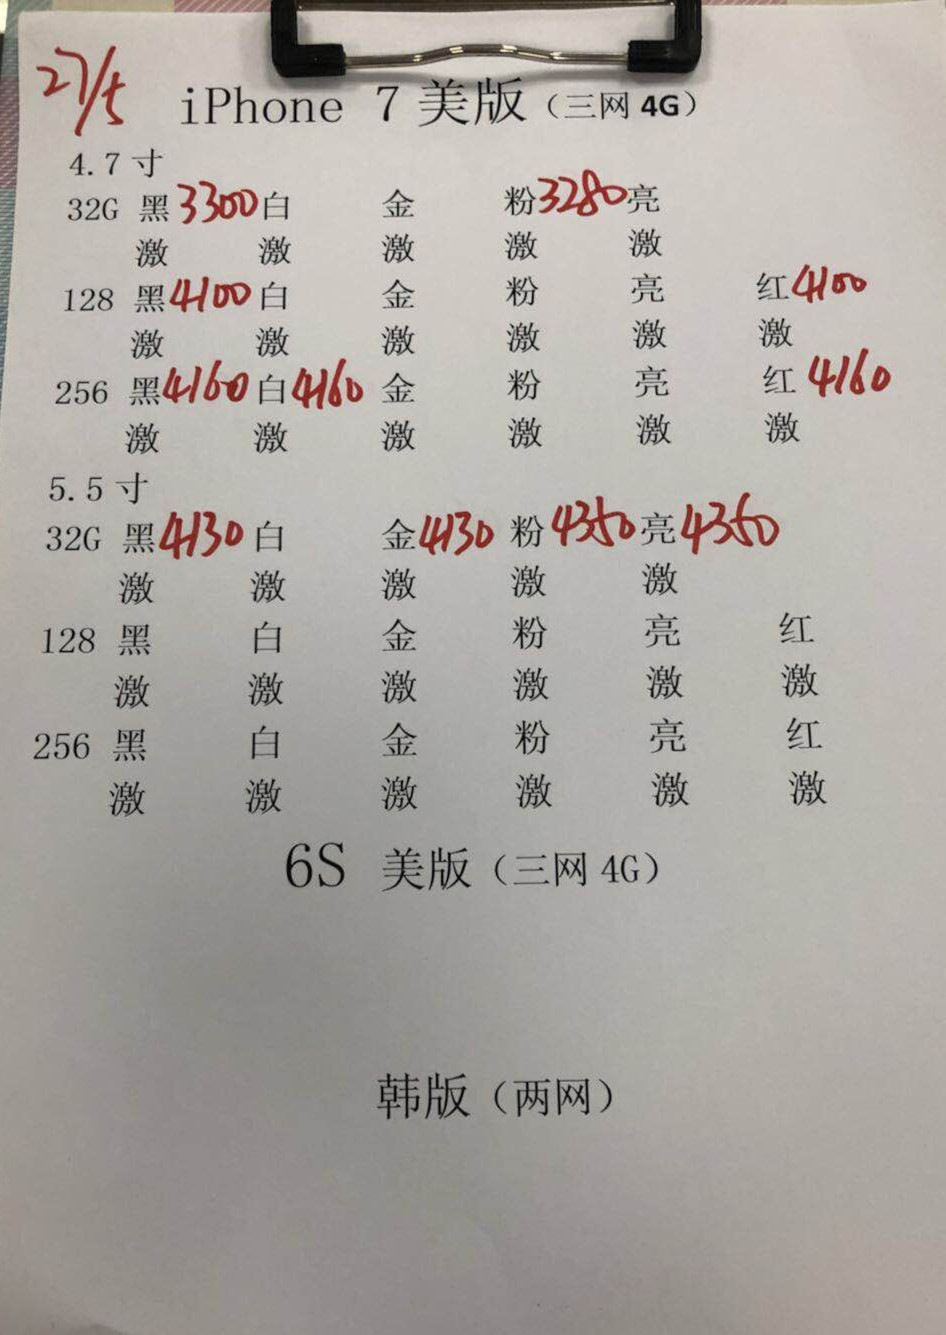 27/5
iPhone 7 美版（三网 4G）
4.7 寸
32G 黑 3300 白 金 粉 3280 亮
激 激 激 激 激
128 黑 4100 白 金 粉 亮 红 4100
激 激 激 激 激 激
256 黑 4160 白 4160 金 粉 亮 红 4160
激 激 激 激 激 激
5.5 寸
32G 黑 4130 白 金 4130 粉 4350 亮 4350
激 激 激 激 激
128 黑 白 金 粉 亮 红
激 激 激 激 激 激
256 黑 白 金 粉 亮 红
激 激 激 激 激 激
6S 美版（三网 4G）
韩版（两网）